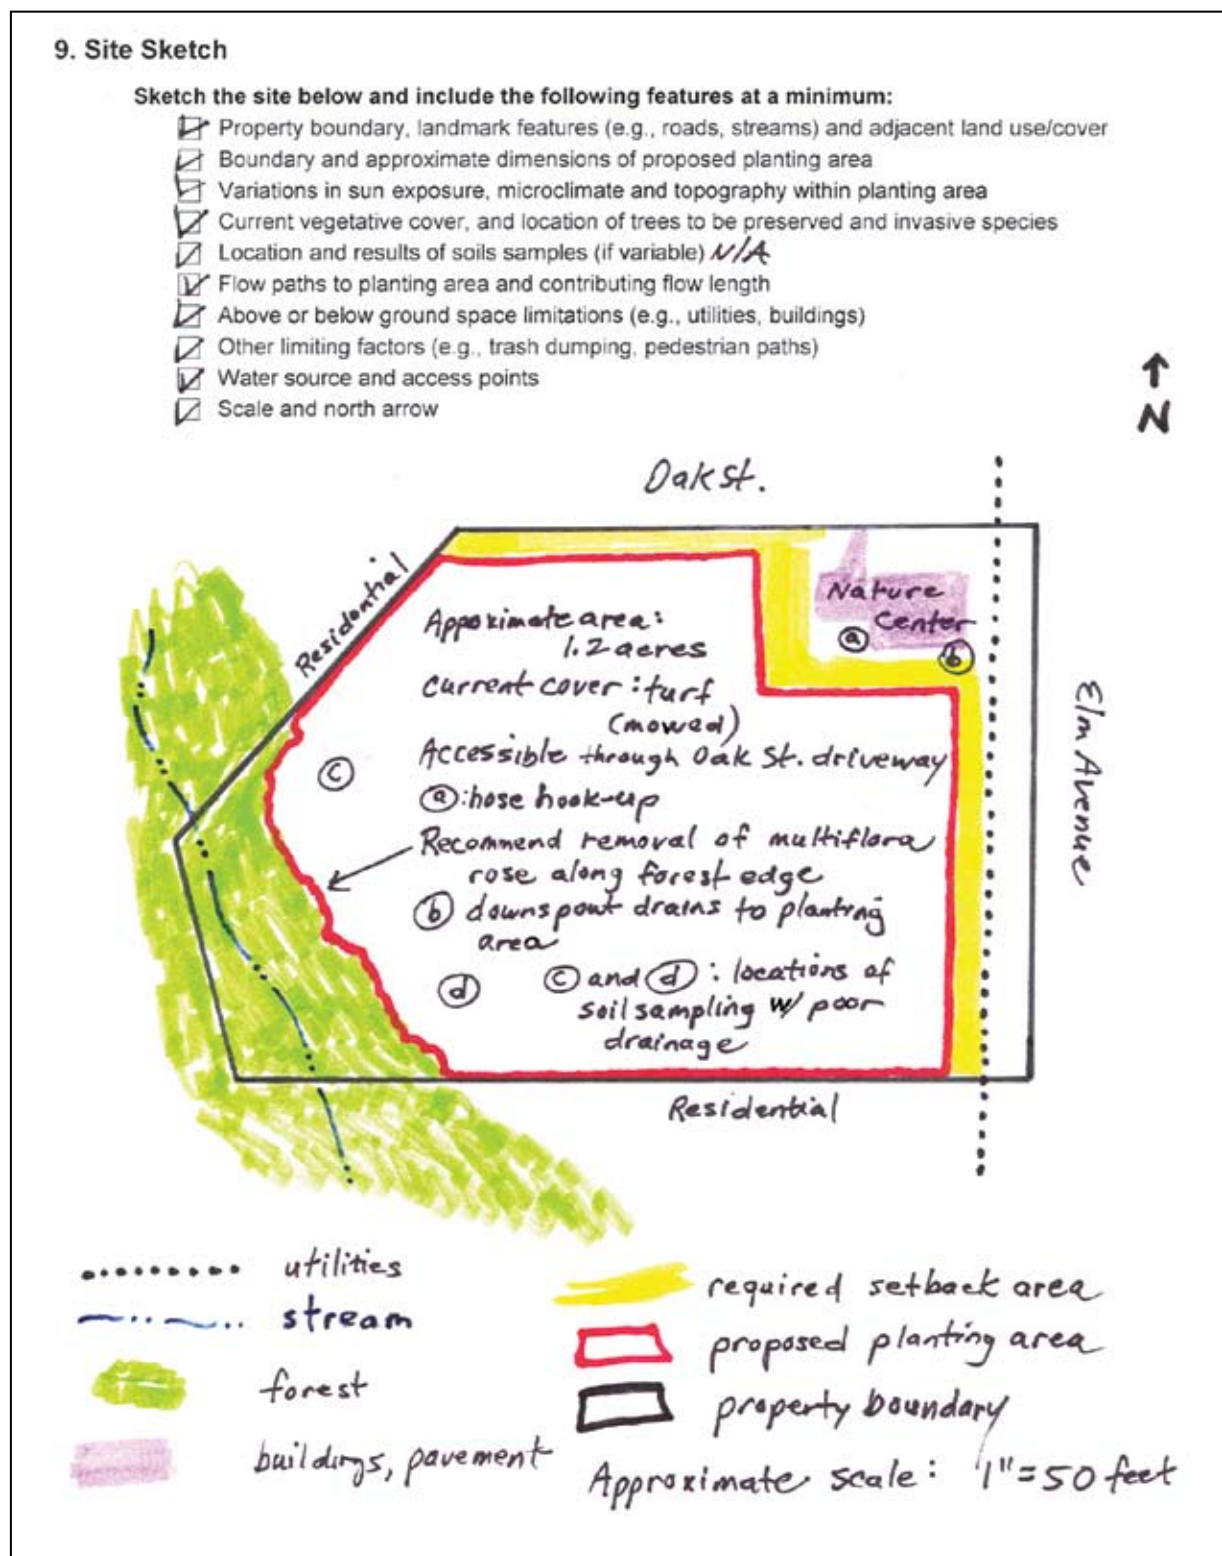 9. Site Sketch
Sketch the site below and include the following features at a minimum:
Property boundary, landmark features (e.g., roads, streams) and adjacent land use/cover
Boundary and approximate dimensions of proposed planting area
Variations in sun exposure, microclimate and topography within planting area
Current vegetative cover, and location of trees to be preserved and invasive species
Location and results of soils samples (if variable) N/A
Flow paths to planting area and contributing flow length
Above or below ground space limitations (e.g., utilities, buildings)
Other limiting factors (e.g., trash dumping, pedestrian paths)
Water source and access points
Scale and north arrow
N
Oak St.
Residential
Nature
Center
a
b
Elm Avenue
Appoximate area:
1.2 acres
Current cover: turf
(mowed)
Accessible through Oak St. driveway
c
a: hose hook-up
Recommend removal of multiflora
rose along forest edge
b downspout drains to planting
area
d
c and d: locations of
soil sampling w/ poor
drainage
Residential
utilities
stream
forest
buildings, pavement
required setback area
proposed planting area
property boundary
Approximate scale: 1"=50 feet